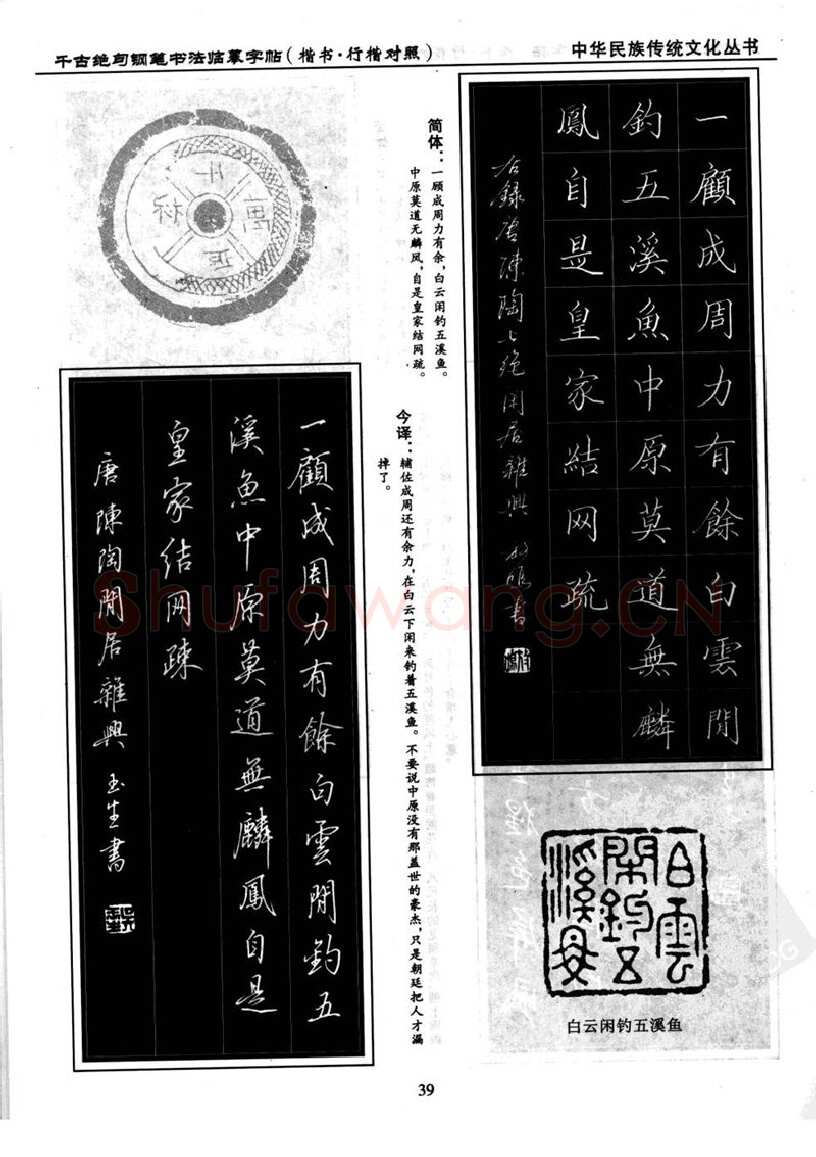 千古绝句钢笔书法临摹字帖(楷书·行楷对照)
中华民族传统文化丛书
一顧成周力有餘白雲閒
釣五溪魚中原莫道無麟
鳳自是皇家結网疏
右録唐陳陶七绝閑居雜興
書
简体：一顾成周力有余，白云闲钓五溪鱼。
中原莫道无麟凤，自是皇家结网疏。
今译：辅佐成周还有余力，在白云下闲来钓着五溪鱼。不要说中原没有那盖世的豪杰，只是朝廷把人才漏
掉了。
一顧成周力有餘白雲閒釣五
溪魚中原莫道無麟鳳自是
皇家结网疎
唐陳陶閒居雜興 玉生書
白雲
閑釣五
溪魚
白云闲钓五溪鱼
39
Shufawang.CN